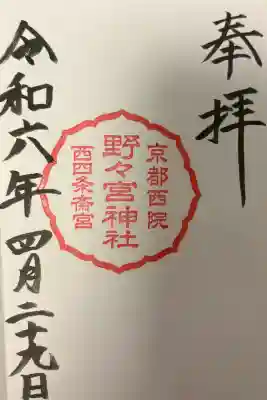 奉拝
京都西院
野々宮神社
西四条斎宮
令和六年四月二十九日